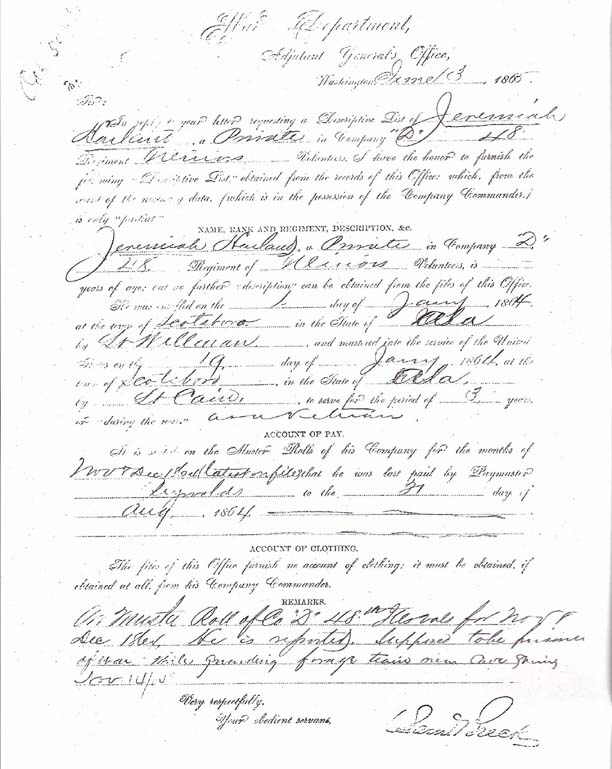 War Department,
Adjutant General's Office,
Washington, June 13, 1865
Sir:
In reply to your letter requesting a Descriptive List of Jeremiah
a Private in Company "D" 48
Regiment Illinois Volunteers, I have the honor to furnish the
following "Descriptive List" obtained from the records of this Office; which, from the
want of the necessary data, (which is in the possession of the Company Commander,)
is only "partial"
NAME, RANK AND REGIMENT, DESCRIPTION, &c.
Jeremiah a Private in Company "D."
48 Regiment of Illinois Volunteers, is
years of age; but no further "description" can be obtained from the files of this Office.
He was enrolled on the 1 day of Jany, 1864
at the town of Scotsboro in the State of Ala
by Lt Willman, and mustered into the service of the United
States on the 19 day of Jany, 1864, at the
town of Scotsboro, in the State of Ala.
by Lt to serve for the period of 3 years
or "during the war."
ACCOUNT OF PAY.
It is stated on the Muster Rolls of his Company for the months of
Nov & Dec 1864 (latest on file) that he was last paid by Paymaster
Reynolds to the 31 day of
Aug, 1864.
ACCOUNT OF CLOTHING.
The files of this Office furnish no account of clothing; it must be obtained, if
obtained at all, from his Company Commander.
REMARKS.
On Muster Roll of Co "D" 48th Illinois for Nov &
Dec 1864, He is reported. Supposed to be prisoner
of war while guarding forage train near
Nov 14/64
Very respectfully,
Your obedient servant,
Saml Breck